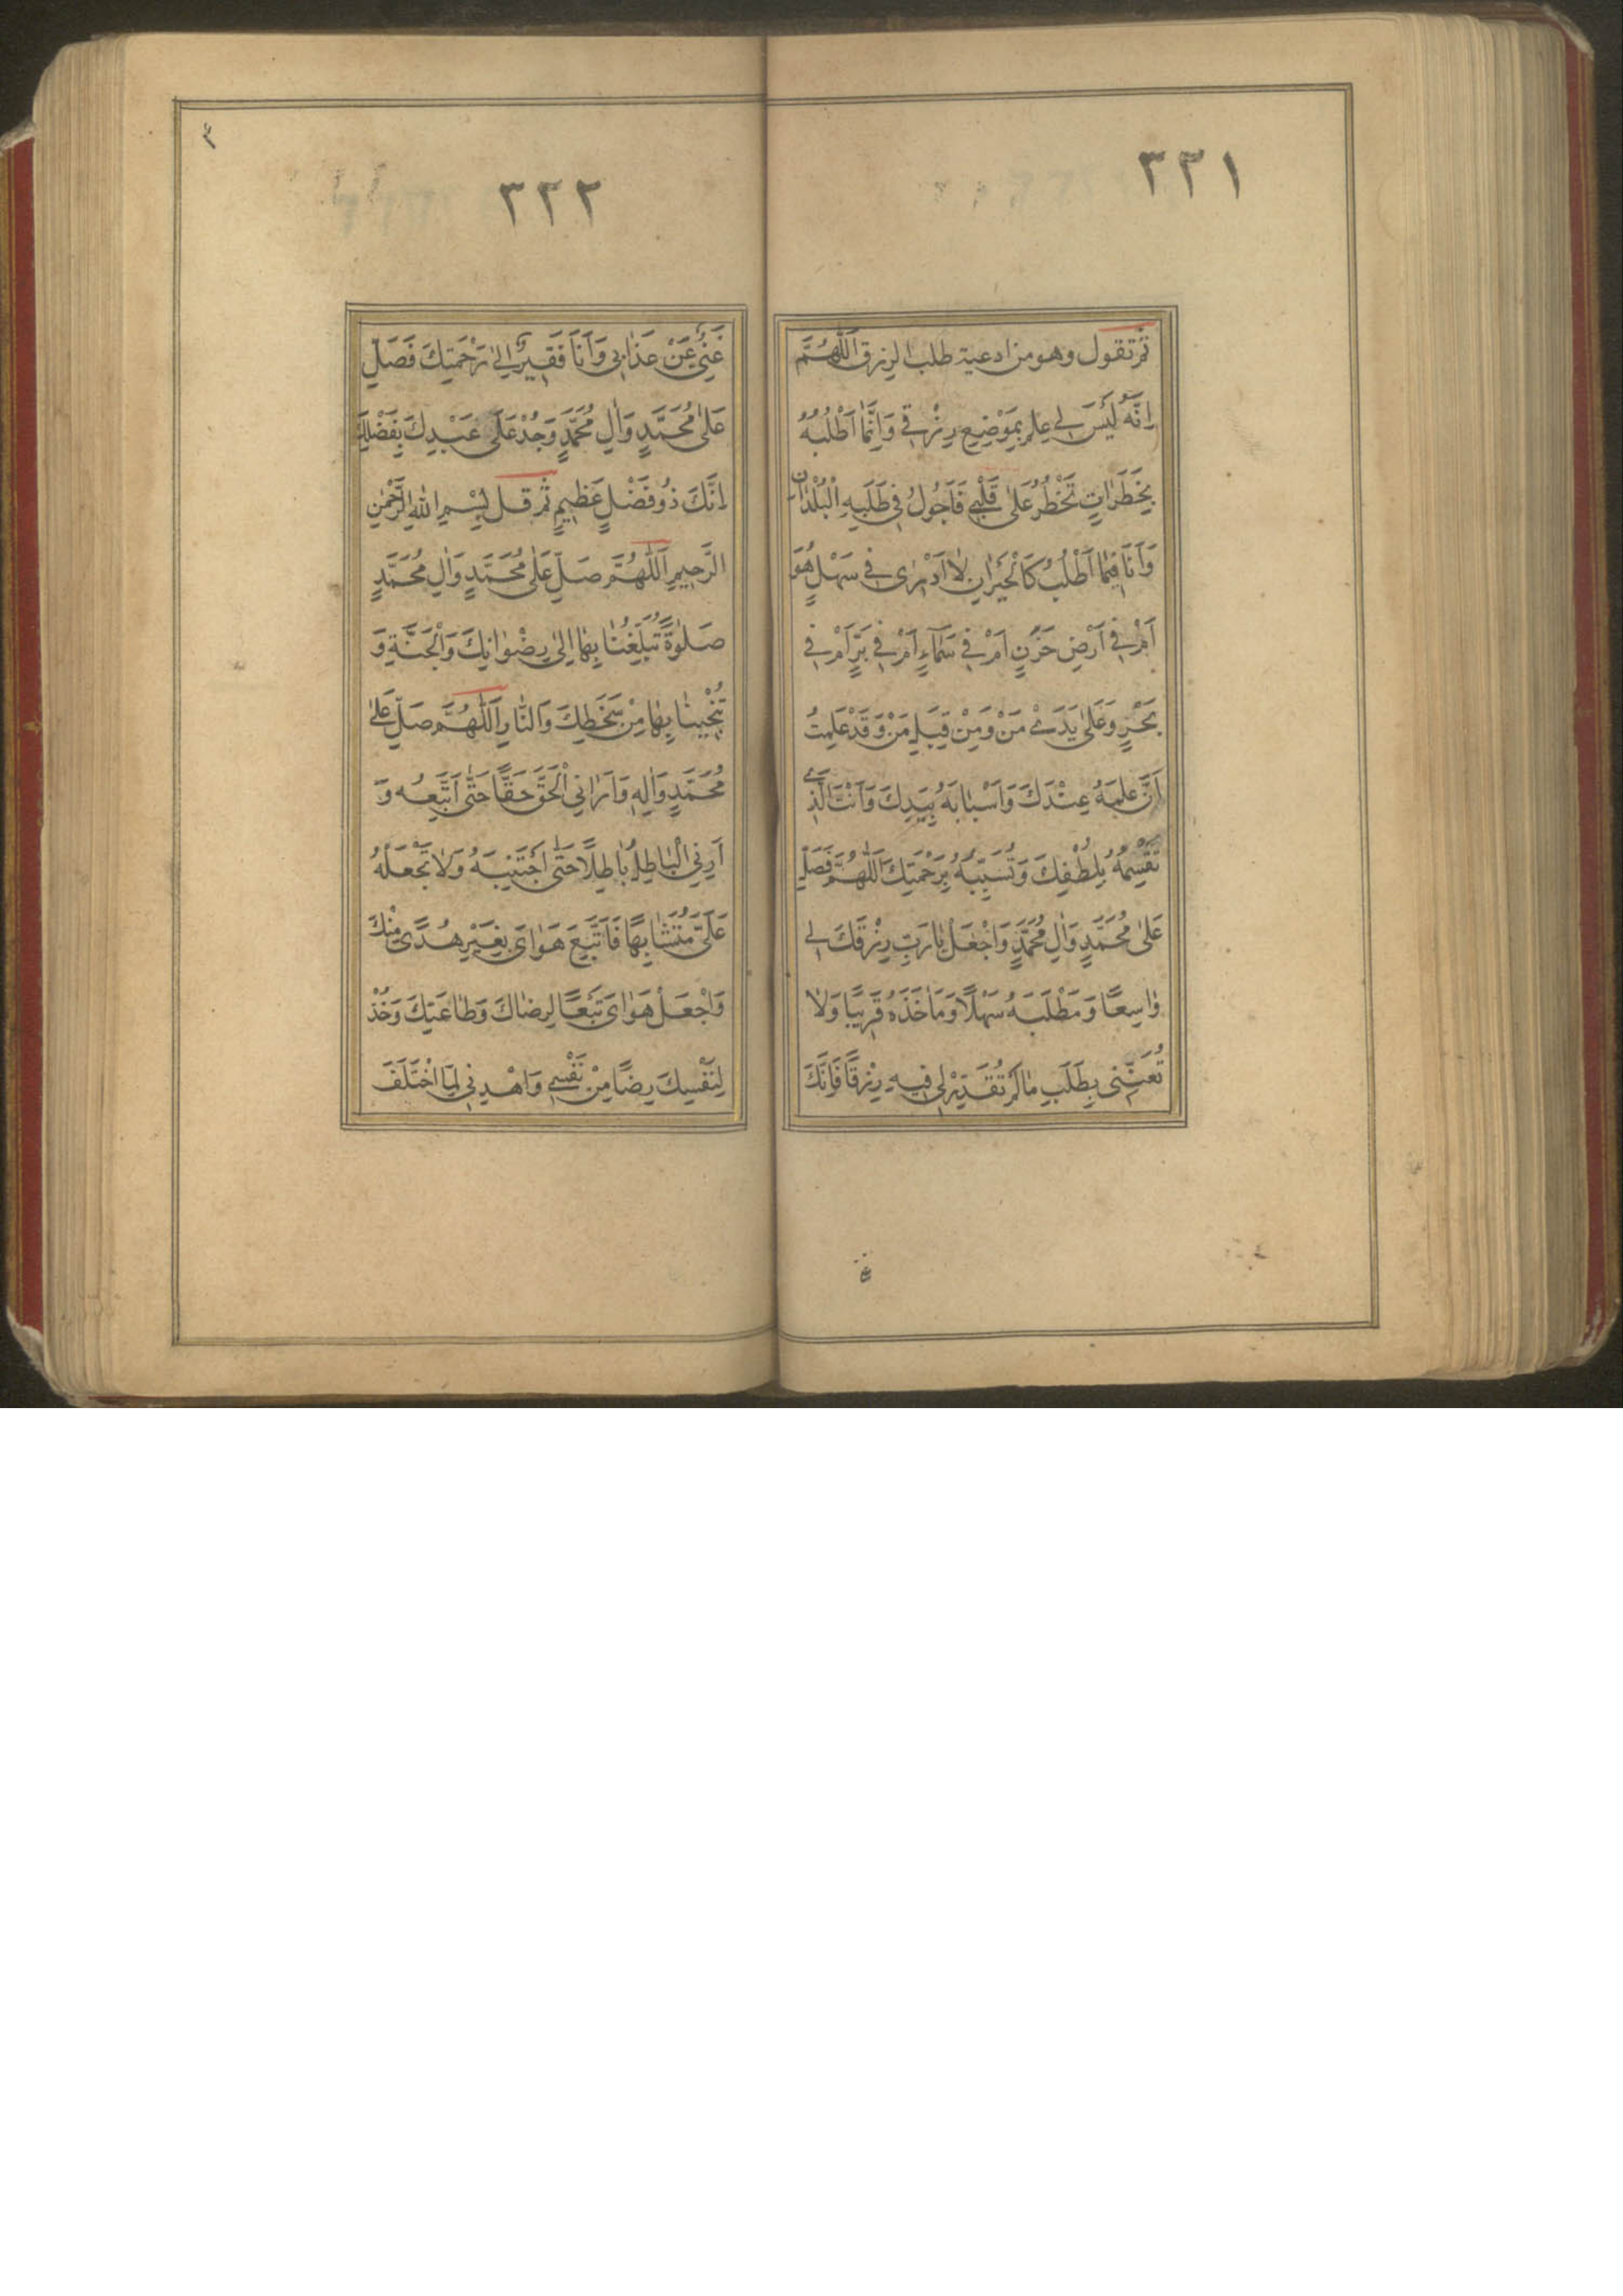 ٣٢١
ثم تقول وهو من ادعية طلب الرزق اَللّٰهُمَّ
اِنَّهُ لَيْسَ لي عِلْمٌ بِمَوْضِعِ رِزْقي وَاِنَّمٰا اَطْلُبُهُ
بِخَطَرٰاتٍ تَخْطُرُ عَلىٰ قَلْبي فَاَجُولُ في طَلَبِهِ الْبُلْدٰانَ
وَاَنَا فيمٰا اَطْلُبُ كَالْحَيْرٰانِ لٰا اَدْرى في سَهْلٍ هُوَ
اَمْ في اَرْضٍ حَزْنٍ اَمْ في سَمٰآءٍ اَمْ في بَرٍّ اَمْ في
بَحْرٍ وَعَلىٰ يَدَيْ مَنْ وَمِنْ قِبَلِ مَنْ وَقَدْ عَلِمْتُ
اَنَّ عِلْمَهُ عِنْدَكَ وَاَسْبٰابَهُ بِيَدِكَ وَاَنْتَ الَّذي
تَقْسِمُهُ بِلُطْفِكَ وَتُسَبِّبُهُ بِرَحْمَتِكَ اَللّٰهُمَّ فَصَلِّ
عَلىٰ مُحَمَّدٍ وَاٰلِ مُحَمَّدٍ وَاجْعَلْ يٰا رَبِّ رِزْقَكَ لي
وٰاسِعًا وَمَطْلَبَهُ سَهْلًا وَمَاْخَذَهُ قَريبًا وَلٰا
تُعَنِّنى بِطَلَبِ مٰا لَمْ تُقَدِّرْ لى فيهِ رِزْقًا فَاِنَّكَ
٣٢٢
غَنِىٌّ عَنْ عَذٰابى وَاَنَا فَقيرٌ اِلىٰ رَحْمَتِكَ فَصَلِّ
عَلىٰ مُحَمَّدٍ وَاٰلِ مُحَمَّدٍ وَجُدْ عَلىٰ عَبْدِكَ بِفَضْلِكَ
اِنَّكَ ذُو فَضْلٍ عَظيمٍ ثم قل بِسْمِ اللّٰهِ الرَّحْمٰنِ
الرَّحيمِ اَللّٰهُمَّ صَلِّ عَلىٰ مُحَمَّدٍ وَاٰلِ مُحَمَّدٍ
صَلٰوةً تُبَلِّغُنٰا بِهٰا اِلىٰ رِضْوٰانِكَ وَالْجَنَّةِ وَ
تُنْجينٰا بِهٰا مِنْ سَخَطِكَ وَالنّٰارِ اَللّٰهُمَّ صَلِّ عَلىٰ
مُحَمَّدٍ وَاٰلِهِ وَاَرٰانِي الْحَقَّ حَقًّا حَتّٰى اَتَّبِعُه وَ
اَرِنِي الْبٰاطِلَ بٰاطِلًا حَتّٰى اَجْتَنِبَهُ وَلٰا تَجْعَلْهُ
عَلَىَّ مُتَشٰابِهًا فَاَتَّبِعَ هَوٰاىَ بِغَيْرِ هُدًى مِنْكَ
وَاجْعَلْ هَوٰاىَ تَبَعًا لِرِضٰاكَ وَطٰاعَتِكَ وَخُذْ
لِنَفْسِكَ رِضًا مِنْ نَفْسي وَاهْدِنى لِمَا اخْتَلَفَ